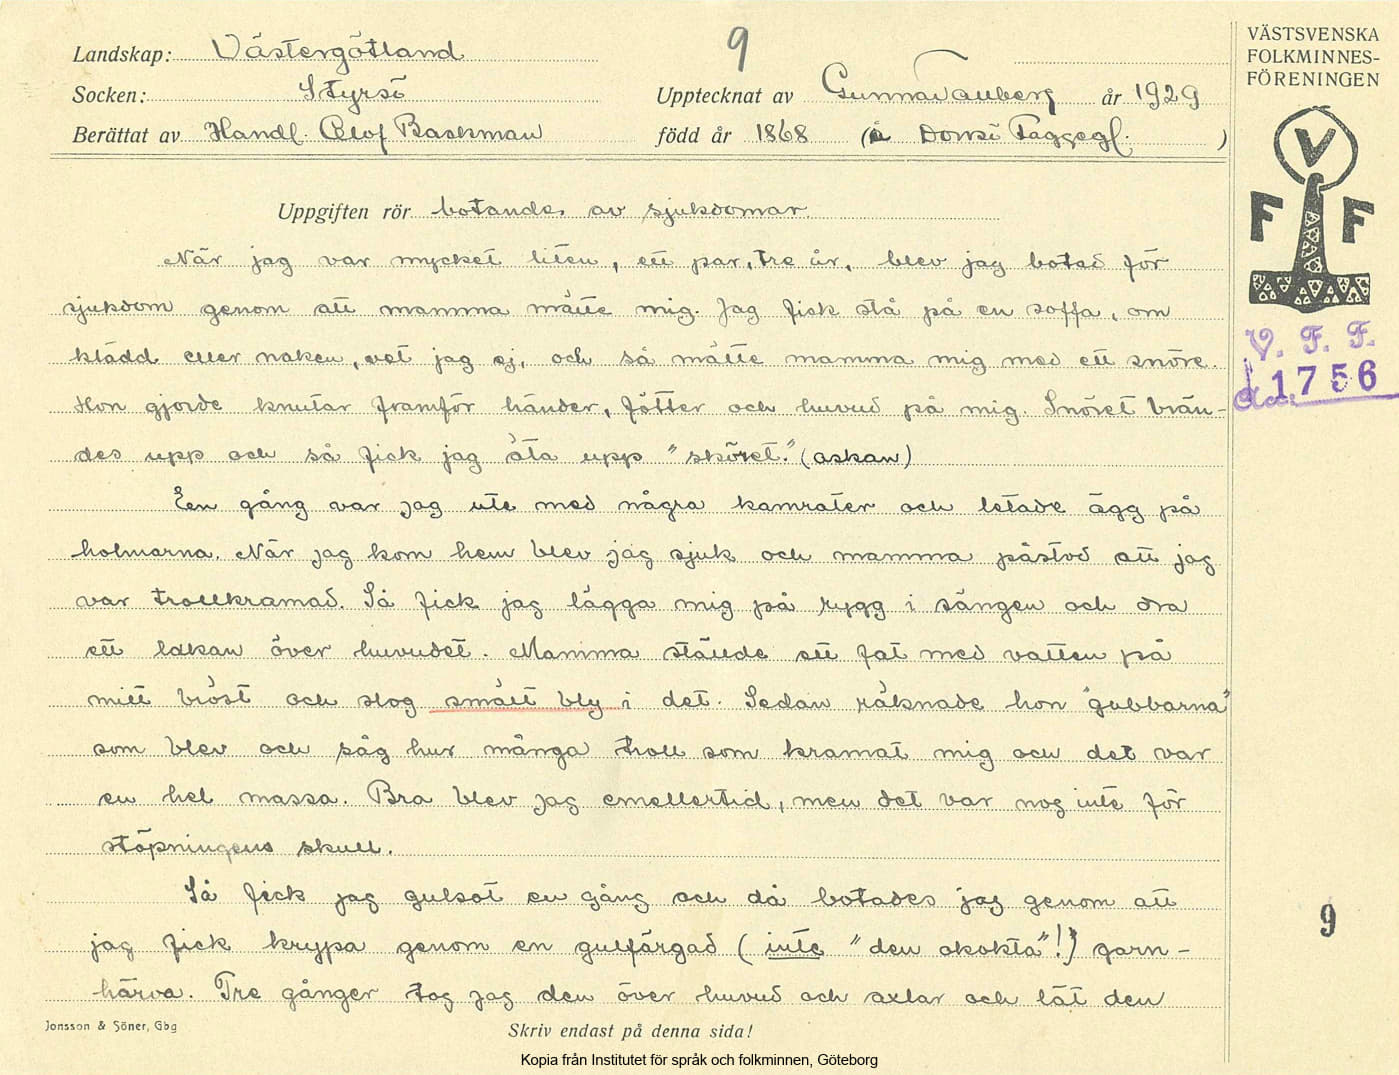 9
Landskap: Västergötland
Socken: Styrsö
Upptecknat av Gunnar år 1929
Berättat av Handl. Olof Backman född år 1868 (i Donsö )
Uppgiften rör botande av sjukdomar.
När jag var mycket liten, ett par, tre år, blev jag botad för
sjukdom genom att mamma mätte mig. Jag fick stå på en soffa, om
klädd eller naken, vet jag ej, och så mätte mamma mig med ett snöre.
Hon gjorde knutar framför händer, fötter och huvud på mig. Snöret brän-
des upp och så fick jag äta upp "sköret." (askan)
En gång var jag ute med några kamrater och letade ägg på
holmarna. När jag kom hem blev jag sjuk och mamma påstod att jag
var trollkramad. Så fick jag lägga mig på rygg i sängen och dra
ett lakan över huvudet. Mamma ställde ett fat med vatten på
mitt bröst och slog smält bly i det. Sedan räknade hon "gubbarna"
som blev och såg hur många troll som kramat mig och det var
en hel massa. Bra blev jag emellertid, men det var nog inte för
stöpningens skull.
Så fick jag gulsot en gång och då botades jag genom att
jag fick krypa genom en gulfärgad (inte "den okokta"!) garn-
härva. Tre gånger tog jag den över huvud och axlar och lät den
Jonsson & Söner, Gbg
Skriv endast på denna sida!
Kopia från Institutet för språk och folkminnen, Göteborg
VÄSTSVENSKA
FOLKMINNES-
FÖRENINGEN
V
F F
V. F. F.
1756
9